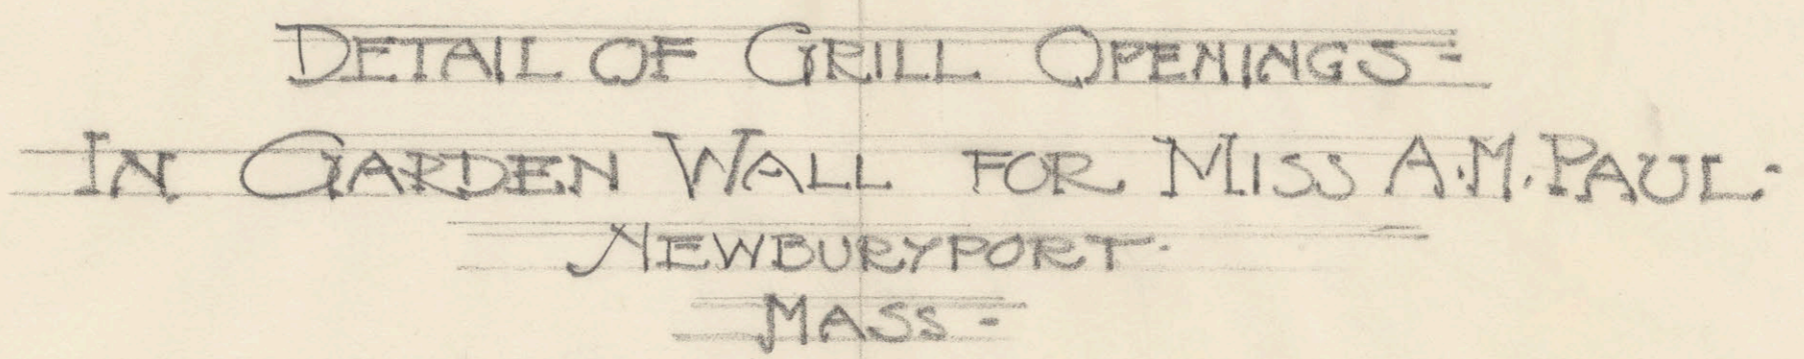 DETAIL OF GRILL OPENINGS-
IN GARDEN WALL FOR MISS A.M. PAUL-
NEWBURYPORT-
MASS-